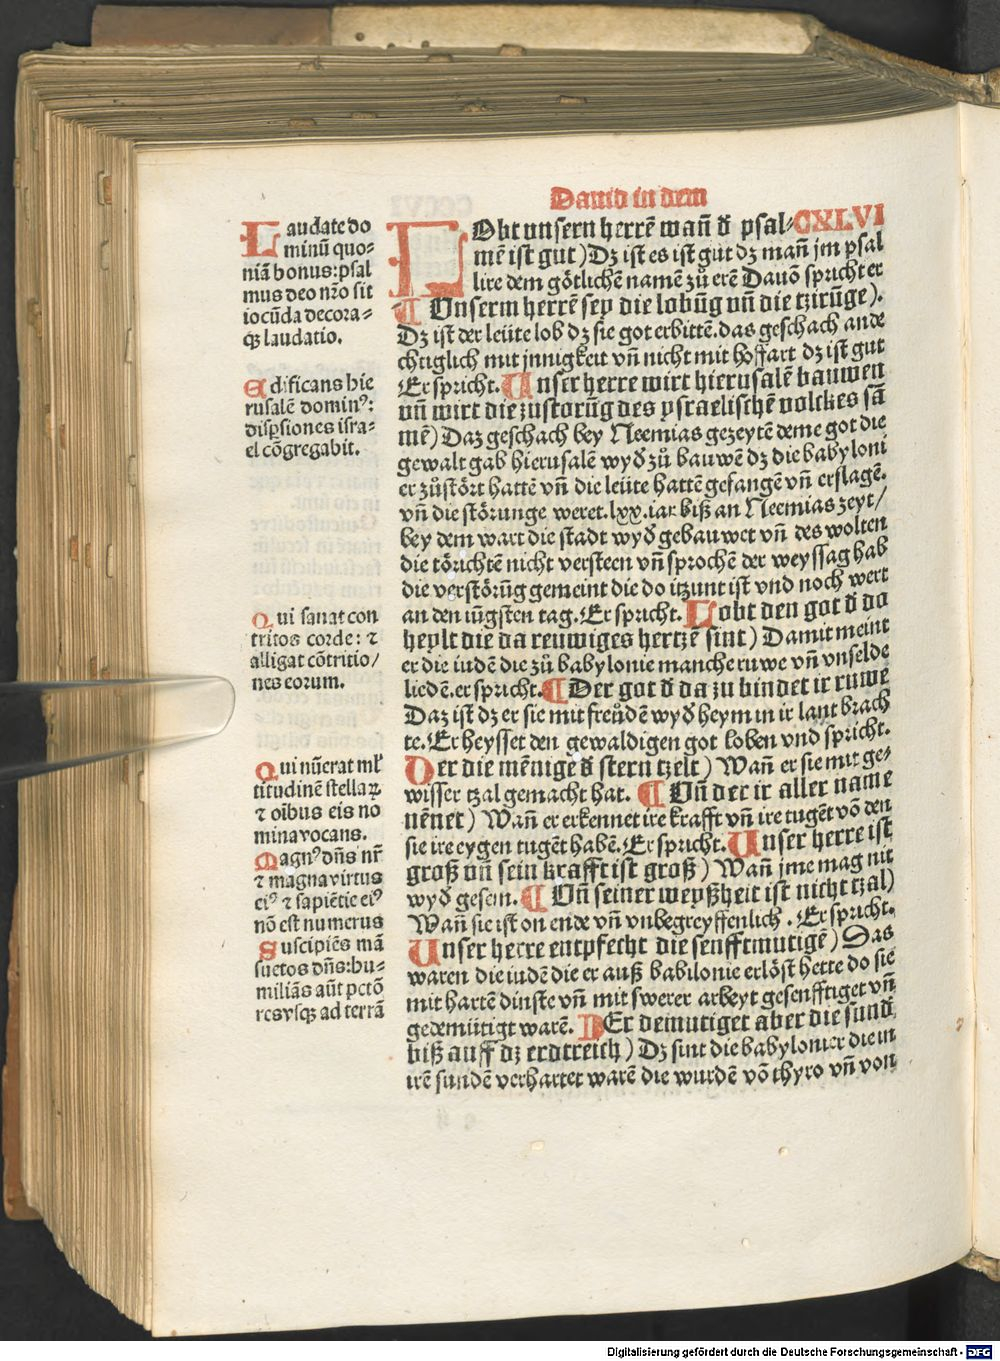 Dauid in dem
Laudate do
minū quo⸗
niā bonus: psal
mus deo nr̄o sit
iocūda decora⸗
qꝫ laudatio.
Edificans hie
rusalē dominꝰ:
disꝑsiones isra⸗
el cōgregabit.
Qui sanat con
tritos corde: ⁊
alligat cōtritio/
nes eorum.
Qui nūerat ml̓
titudinē stellaꝝ
⁊ oībus eis no
mina vocans.
Magnꝰ dn̄s nr̄
⁊ magna virtus
eiꝰ ⁊ sapiētie eiꝰ
nō est numerus
Suscipiēs mā
suetos dn̄s: hu⸗
miliās aūt pctō
res vsqꝫ ad terrā
LObt unsern herrē wañ d̓ psal⸗ CXLVI
mē ist gut) Dꝫ ist es ist gut dꝫ mañ jm psal
lire dem götlichē namē zů erē Dauō spricht er
¶ Unserm herrē sey die lobūg vñ die tzirūge).
Dꝫ ist der leüte lob dꝫ sie got erbittē. das geschach ande
chtiglich mit jnnigkeit vñ nicht mit hoffart dꝫ ist gut
Er spricht. Unser herre wirt hierusalē bauwen
vñ wirt die zustorūg des ysraelischē volckes sā
mē) Daz geschach bey Neemias gezeytē deme got die
gewalt gab hierusalē wyd̓ zů bauwē dꝫ die babyloni
er zůstört hattē vñ die leüte hattē gefangē vñ erslagē.
vñ die störunge weret. lxx. iar biß an Neemias zeyt/
bey dem wart die stadt wyd̓ gebauwet vñ des wolten
die törichtē nicht versteen vñ sprochē der weyssag hab
die verstörūg gemeint die do itzunt ist vnd noch wert
an den iūgsten tag. Er spricht. Lobt den got d̓ do
heylt die da reuwiges hertzē sint) Damit meint
er die iudē die zů babylonie manche ruwe vñ vnselde
liedē. er spricht. ¶ Der got d̓ da zu bindet ir ruwe
Daz ist dꝫ er sie mit freůdē wyd̓ heym in ir lant brach
te. Er heysset den gewaldigen got loben vnd spricht.
Der die mēnige d̓ stern tzelt) Wañ er sie mit ge⸗
wisser tzal gemacht hat. ¶ Vñ der ir aller name
nēnet) Wañ er erkennet ire krafft vñ ire tugēt vō den
sie ire eygen tugēt habē. Er spricht. Unser herre ist
groß vñ sein krafft ist groß) Wañ jme mag nit
wyd̓ gesein. ¶ Vñ seiner weyßheit ist nicht tzal)
Wañ sie ist on ende vñ vnbegreyffenlich. Er spricht.
Unser herre entpfecht die senfftmutigē) Das
waren die iudē die er auß babilonie erlöst hette do sie
mit hartē dinste vñ mit swerer arbeyt gesenfftiget vñ
gedemütigt warē. DEr demutiget aber die sund̓
biß auff dꝫ erdtreich) Dꝫ sint die babylonier die in
irē sundē verhartet warē die wurdē vō thyro vñ von
Digitalisierung gefördert durch die Deutsche Forschungsgemeinschaft - DFG